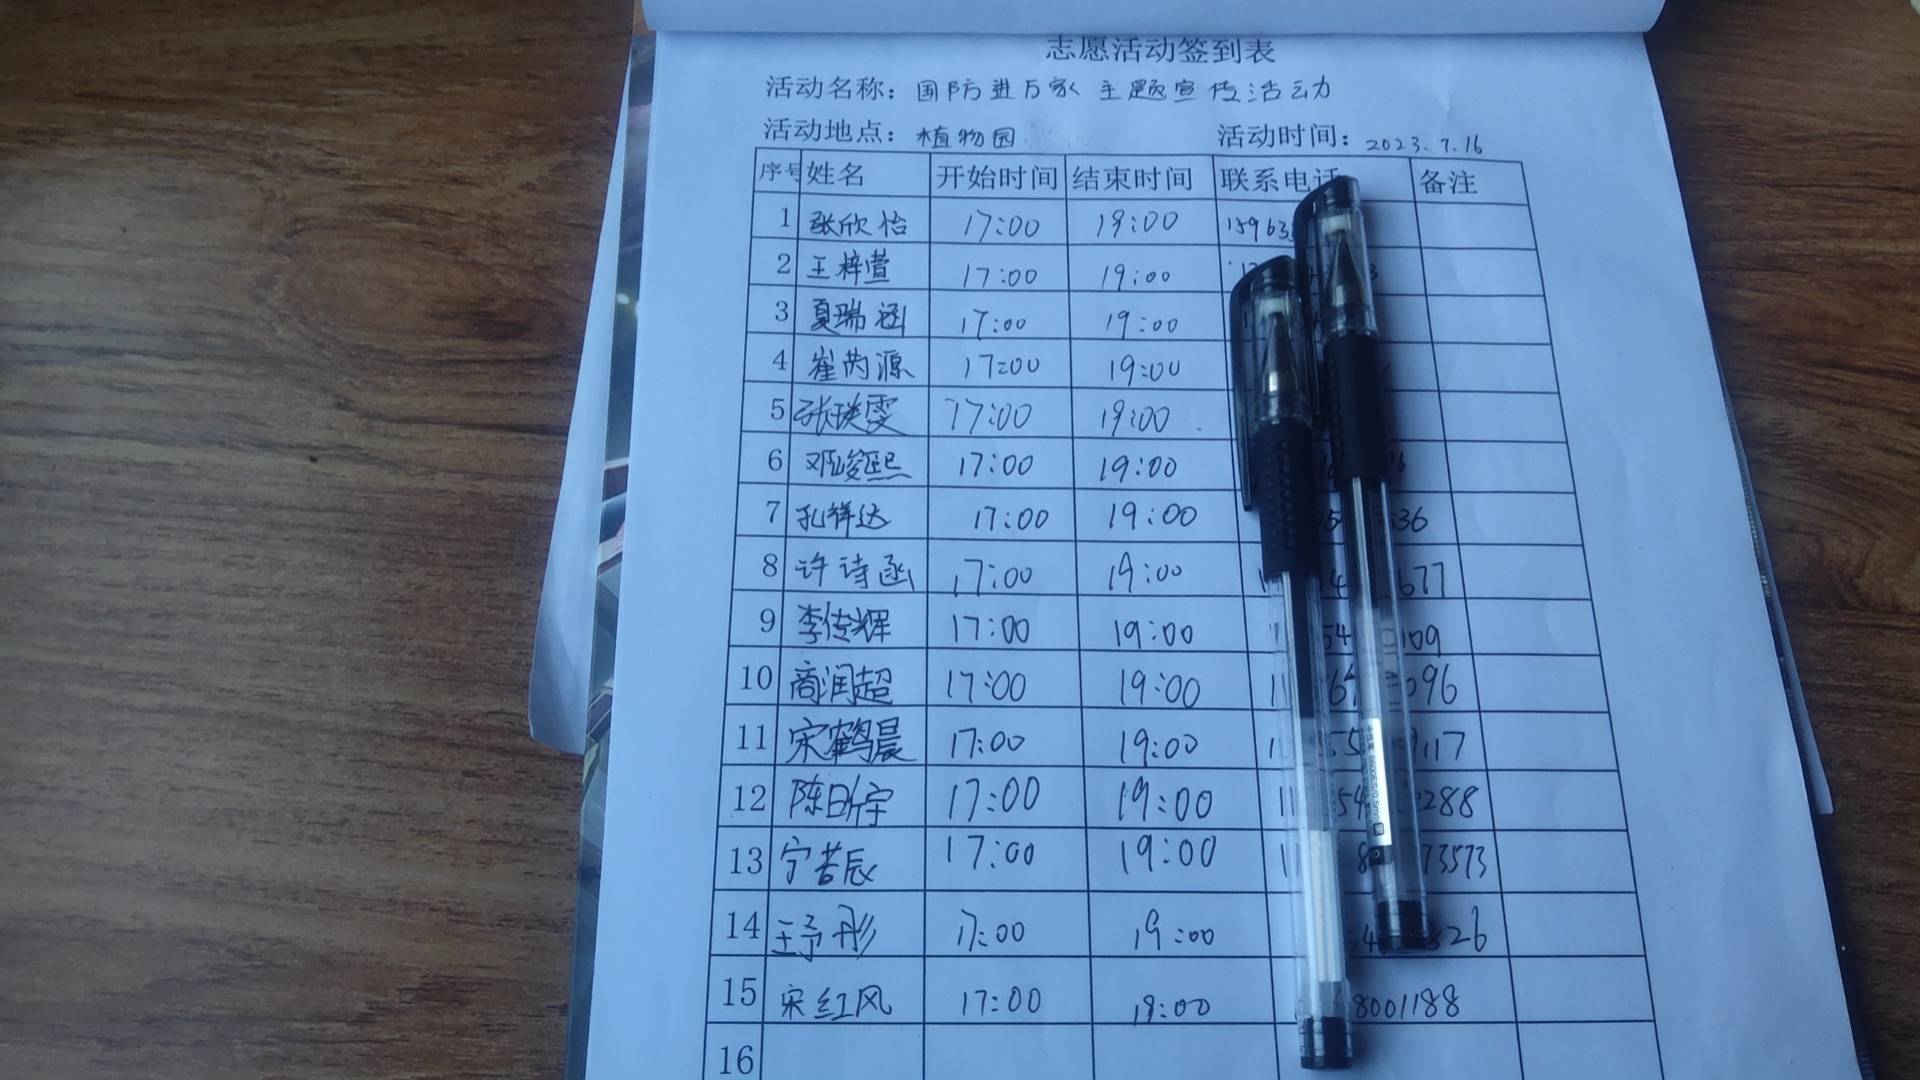 志愿活动签到表
活动名称：国防进万家主题宣传活动
活动地点：植物园 活动时间：2023.7.16
序号 姓名 开始时间 结束时间 联系电话 备注
1 张欣怡 17:00 19:00
2 王梓萱 17:00 19:00
3 夏瑞涵 17:00 19:00
4 崔芮源 17:00 19:00
5 张瑛雯 17:00 19:00
6 邓峻熙 17:00 19:00
7 孔祥达 17:00 19:00 336
8 许诗函 17:00 19:00 677
9 李传辉 17:00 19:00 109
10 商润超 17:00 19:00 096
11 宋鹤晨 17:00 19:00 9117
12 陈昕宇 17:00 19:00 288
13 宁若辰 17:00 19:00 73573
14 王予彤 17:00 19:00 526
15 宋红风 17:00 19:00 8001188
16